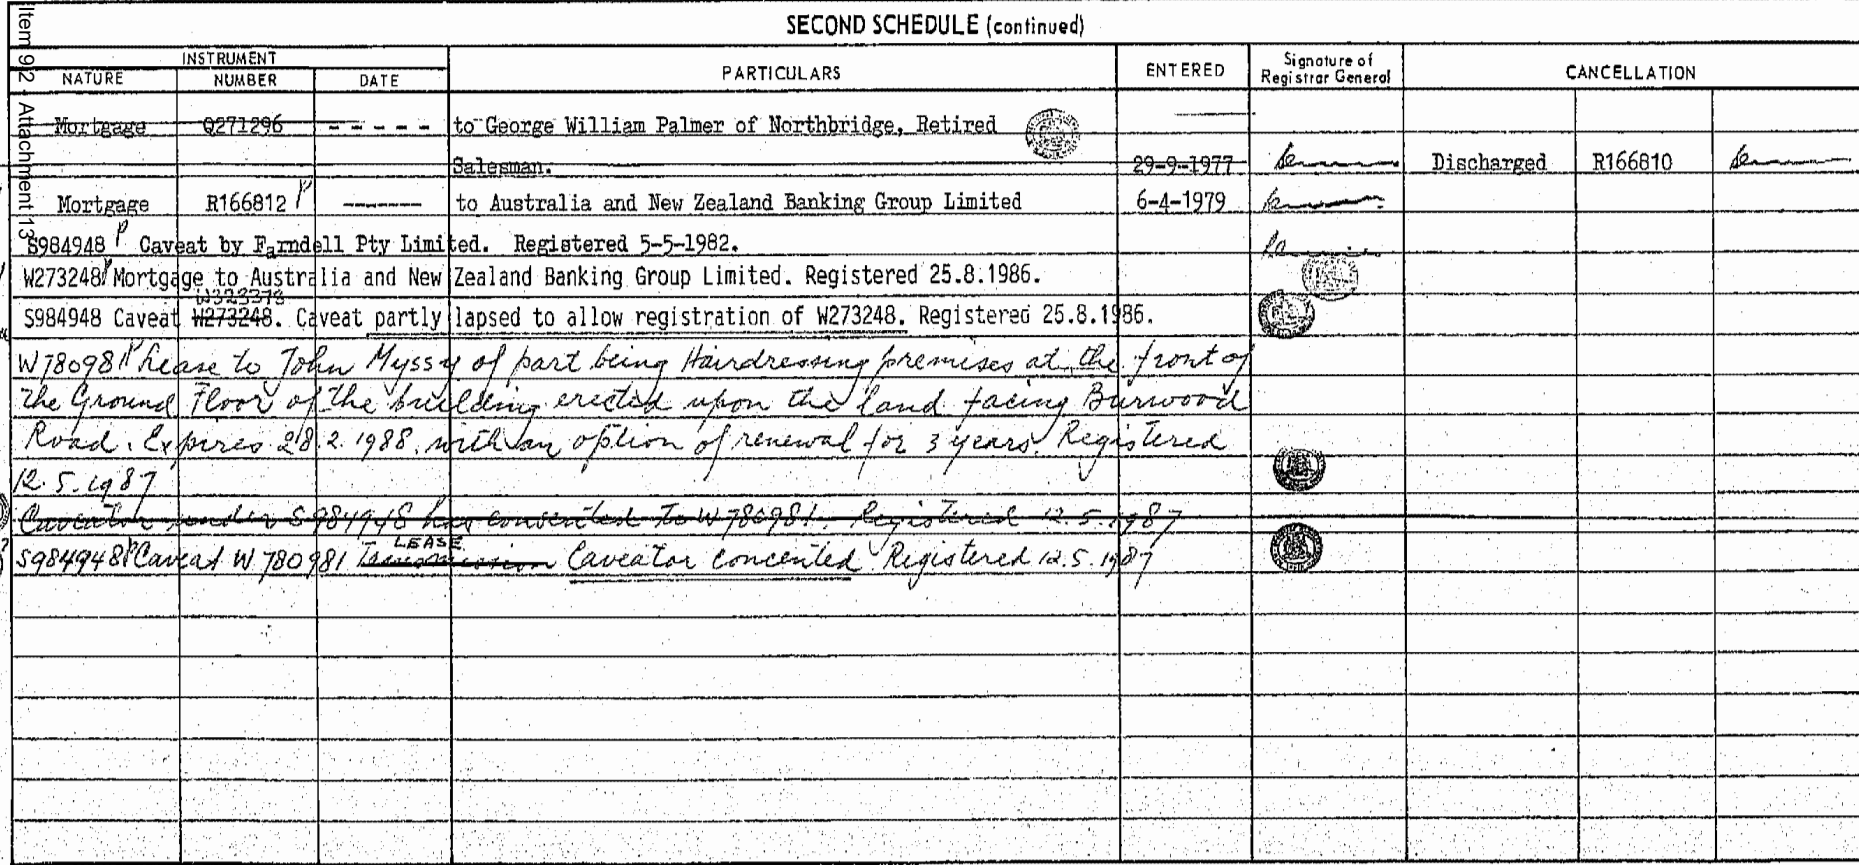 Item 9/2 - Attachment 13
SECOND SCHEDULE (continued)
INSTRUMENT
NATURE NUMBER DATE PARTICULARS ENTERED Signature of Registrar General CANCELLATION
Mortgage Q271296 - - - - - to George William Palmer of Northbridge, Retired
Salesman. 29-9-1977 Discharged R166810
Mortgage R166812 ——— to Australia and New Zealand Banking Group Limited 6-4-1979
S984948 Caveat by Farndell Pty Limited. Registered 5-5-1982.
W273248 Mortgage to Australia and New Zealand Banking Group Limited. Registered 25.8.1986.
W323378
S984948 Caveat W273248. Caveat partly lapsed to allow registration of W273248. Registered 25.8.1986.
W780981 Lease to John Myssy of part being Hairdressing premises at the front of
the Ground Floor of the building erected upon the land facing Burwood
Road. Expires 28.2.1988. with an option of renewal for 3 years. Registered
12.5.1987
Caveator under S984948 has consented to W780981. Registered 12.5.1987
LEASE
S984948 Caveat W780981 Transmission Caveator concented Registered 12.5.1987